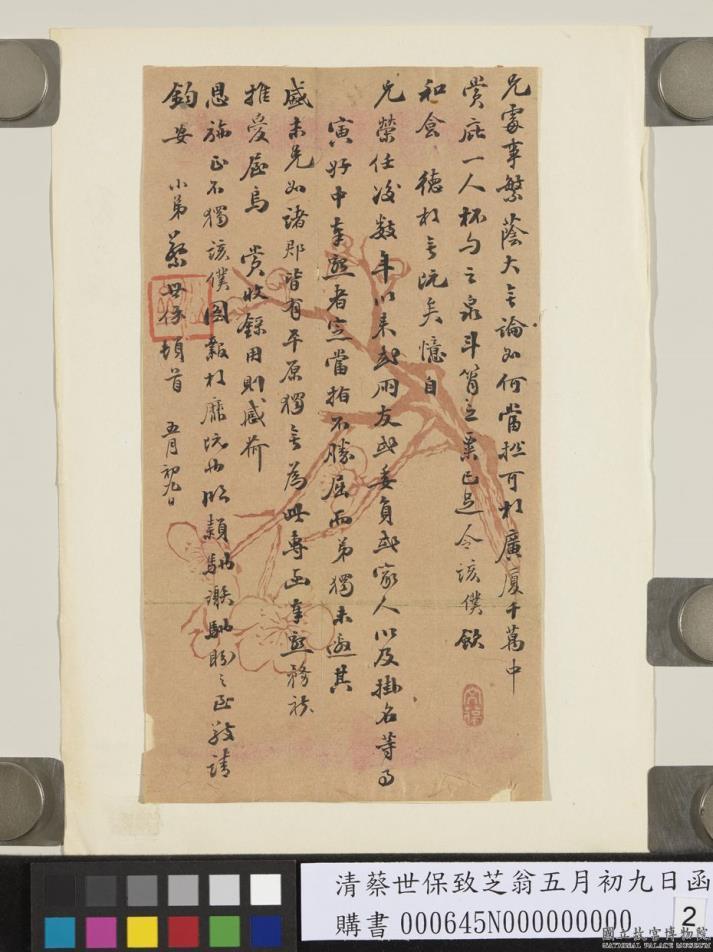 兄處事繁蔭大無論如何當拯可於廣廈千萬中
賞庇一人杯勺之泉斗筲之粟已足令該僕飲
和食德於無既矣憶自
兄榮任後數年以來或朋友或委員或家人以及掛名等事
寅好中奉懇者定當指不勝屈而弟獨未邀其
盛未免如諸郡皆有平原獨無為此專函奉懇務祈
推愛屋烏 賞收錄用則感荷
恩施正不獨該僕圖報於靡既也順頌
鈞安 小弟蔡世保頓首 五月初九日
清蔡世保致芝翁五月初九日函
購書 000645N000000000
2
國立故宮博物院
NATIONAL PALACE MUSEUM